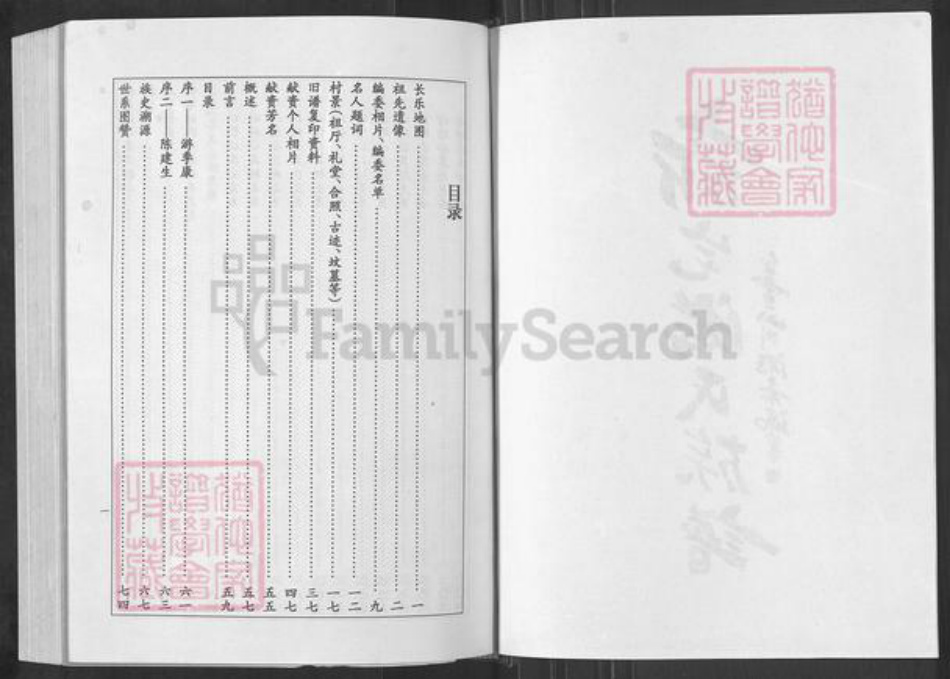 目录
长乐地图 一
祖先遗像 二
编委相片、编委名单 九
名人题词 一二
村景(祖厅、礼堂、合照、古迹、坟墓等) 一七
旧谱复印资料 三七
献资个人相片 四七
献资芳名 五五
概述 五七
前言 五九
目录
序一——游季康 六一
序二——陈建生 六三
族史溯源 六七
世系图赞 七四
一
猶他家
譜學會
收藏
猶他家
譜學會
收藏
FamilySearch